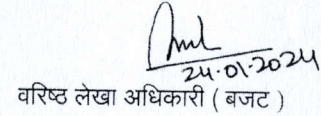 24.01.2024
वरिष्ठ लेखा अधिकारी ( बजट )